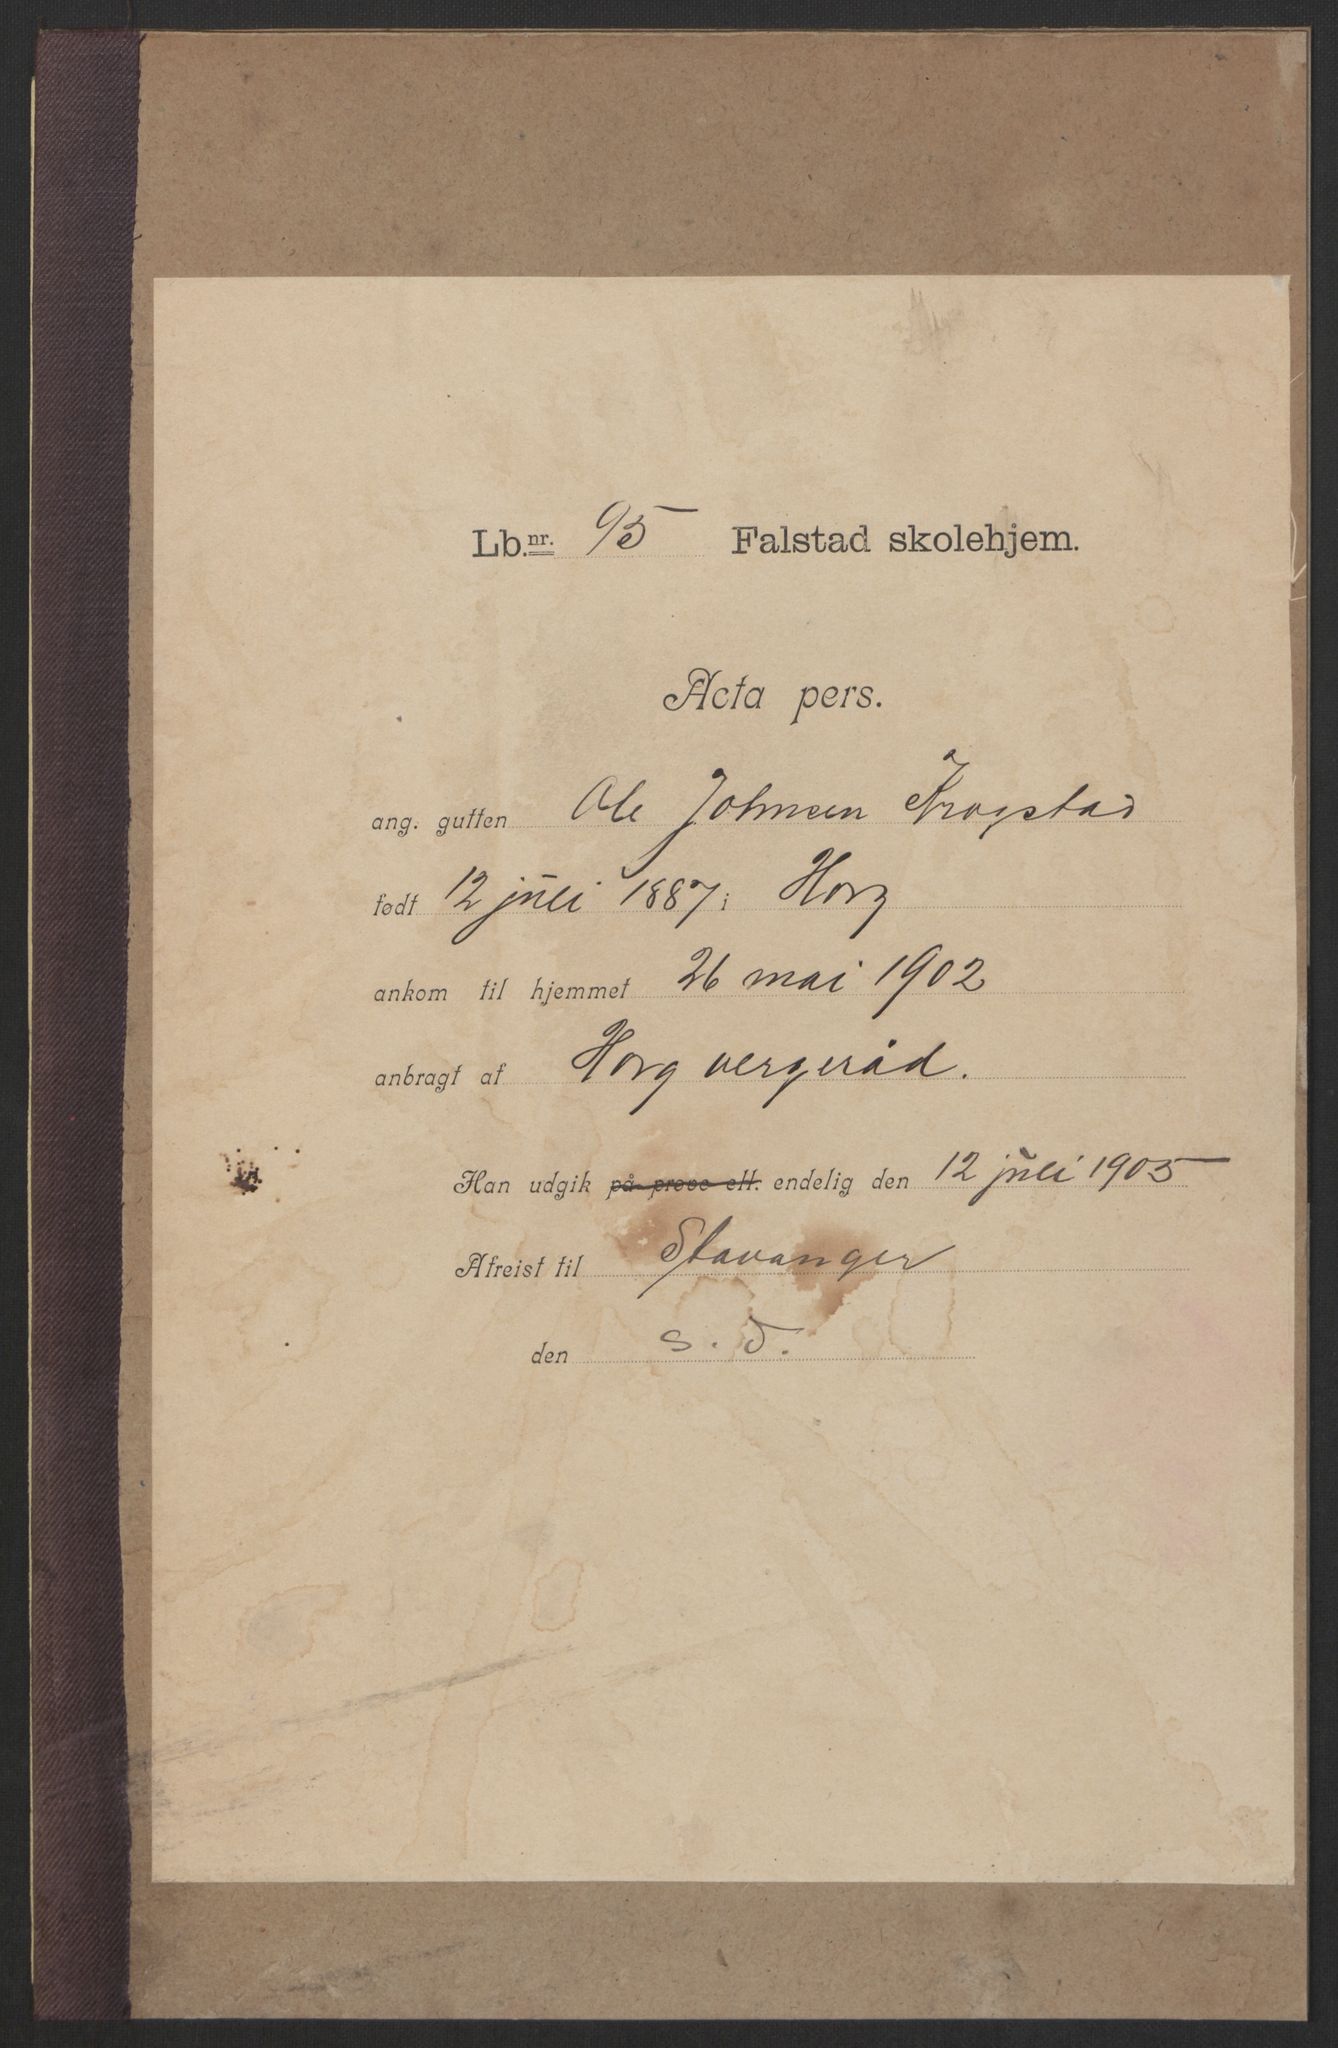 Lb.nr. 95 Falstad skolehjem.
Acta pers.
ang. gutten Ole Johnsen Krogstad
født 12 juli 1887 i Horg
ankom til hjemmet 26 mai 1902
anbragt af Horg vergeråd.
Han udgik på prøve elt. endelig den 12 juli 1905
Afreist til Stavanger
den s. d.